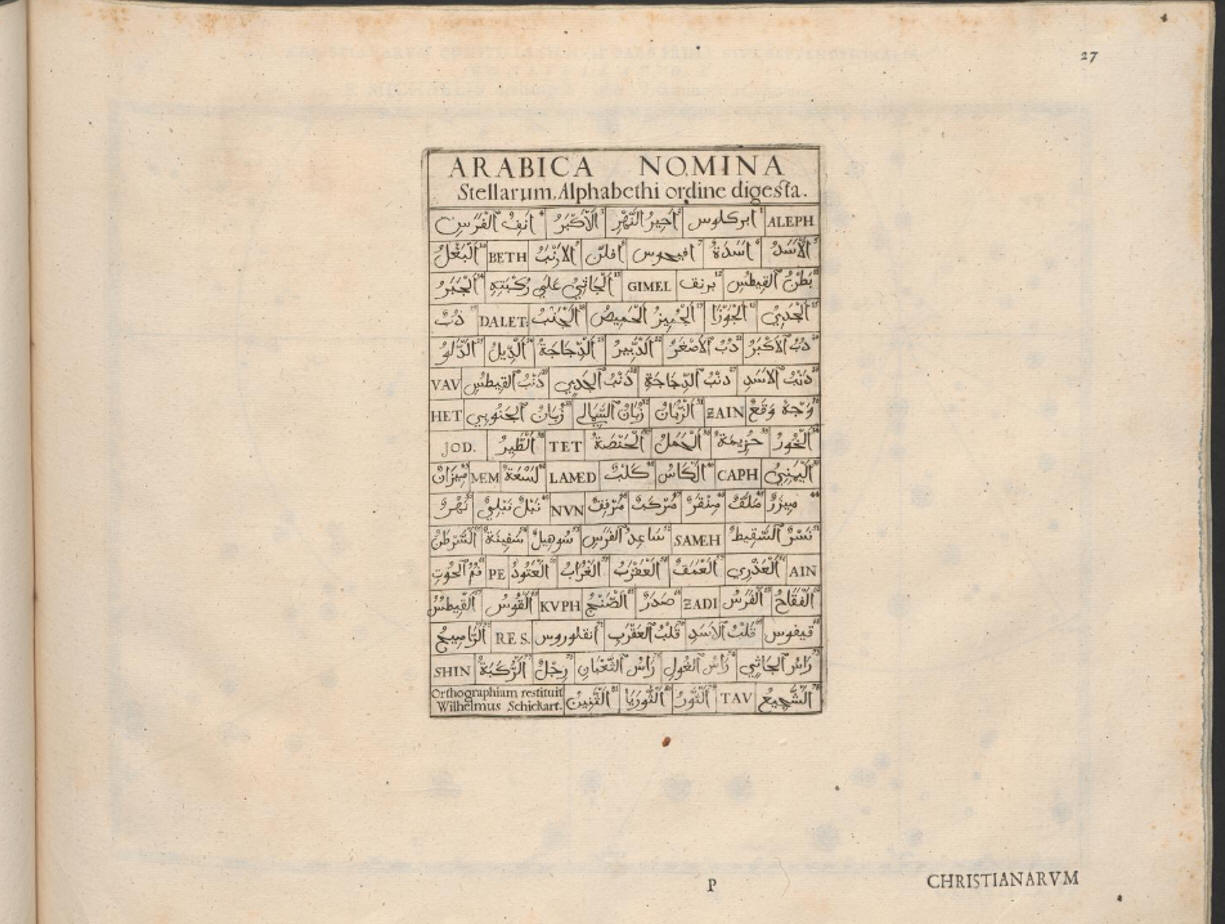 27
ARABICA NOMINA
Stellarum, Alphabethi ordine digesta.
ALEPH ابركلوس اخير النهر الاكبر انف الفرس
الاسد اسدة افيحوس افلن الارنب BETH البغل
بطن القيطس برنف GIMEL الجاثي علي ركبته الجبر
الجدي الجوزا الحميص الجنب DALET دب
دب الاكبر دب الاصغر الدبير الدجاجة الديل الدلو
ذنب الاسد ذنب الدجاجة ذنب الجدي ذنب القيطس VAV
وجه وقع ZAIN الزبان زبان الشمالي زبان الجنوبي HET
الحور حزيمة الحمل الحنصة TET الطير JOD.
اليمني CAPH الكاس كلب LAMED لسعة MEM ميزان
ميزر ملف منقر مركب مرفق NVN نبل نبلي نهر
نسر السقيط SAMEH ساعد الفرس سوهيل سفينة السرطن
AIN العذري العمق العقرب الغراب العتود PE فم الحوت
الفقاح الفرس ZADI صدر الصنج KVPH القوس القيطس
قيفوس قلب الاسد قلب العقرب انقلوروس RES. الراميح
راس الجاثي راس الغول راس الثعبان رجل الركبة SHIN
الشجيع TAV الثور الثوريا التنين Orthographiam restituit
Wilhelmus Schickart.
P CHRISTIANARVM